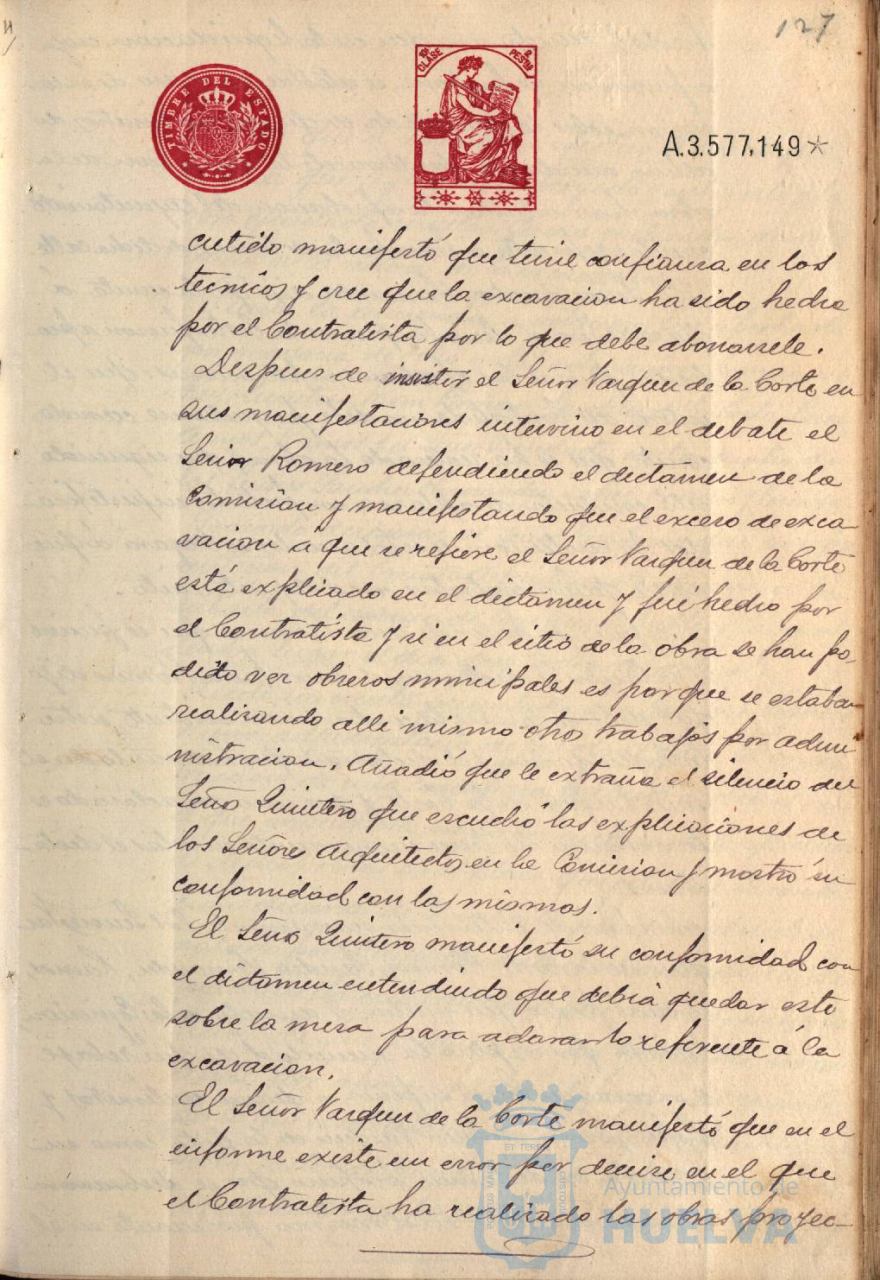 127
TIMBRE DEL ESTADO
10ª CLASE 2 PESETAS
A.3.577,149*
cutido manifestó que tiene confianza en los
tecnicos y cree que la excavacion ha sido hecha
por el Contratista por lo que debe abonarsele.
Despues de insistir el Señor Vazquez de la Corte en
sus manifestaciones intervino en el debate el
Señor Romero defendiendo el dictamen de la
Comision y manifestando que el exceso de exca
vacion á que se refiere el Señor Vazquez de la Corte
está explicado en el dictamen y fué hecho por
el Contratista y si en el sitio de la obra se han po-
dido ver obreros municipales es porque se estaban
realizando alli mismo otros trabajos por admi
nistracion. Añadió que le extraña el silencio del
Señor Quintero que escuchó las explicaciones de
los Señores Arquitectos en la Comision y mostró su
conformidad con las mismas.
El Señor Quintero manifestó su conformidad con
el dictamen entendiendo que debia quedar este
sobre la mesa para aclarar lo referente á la
excavacion.
El Señor Vazquez de la Corte manifestó que en el
informe existe un error por decirse en el que
el Contratista ha realizado las obras proyec-
Ayuntamiento de
HUELVA